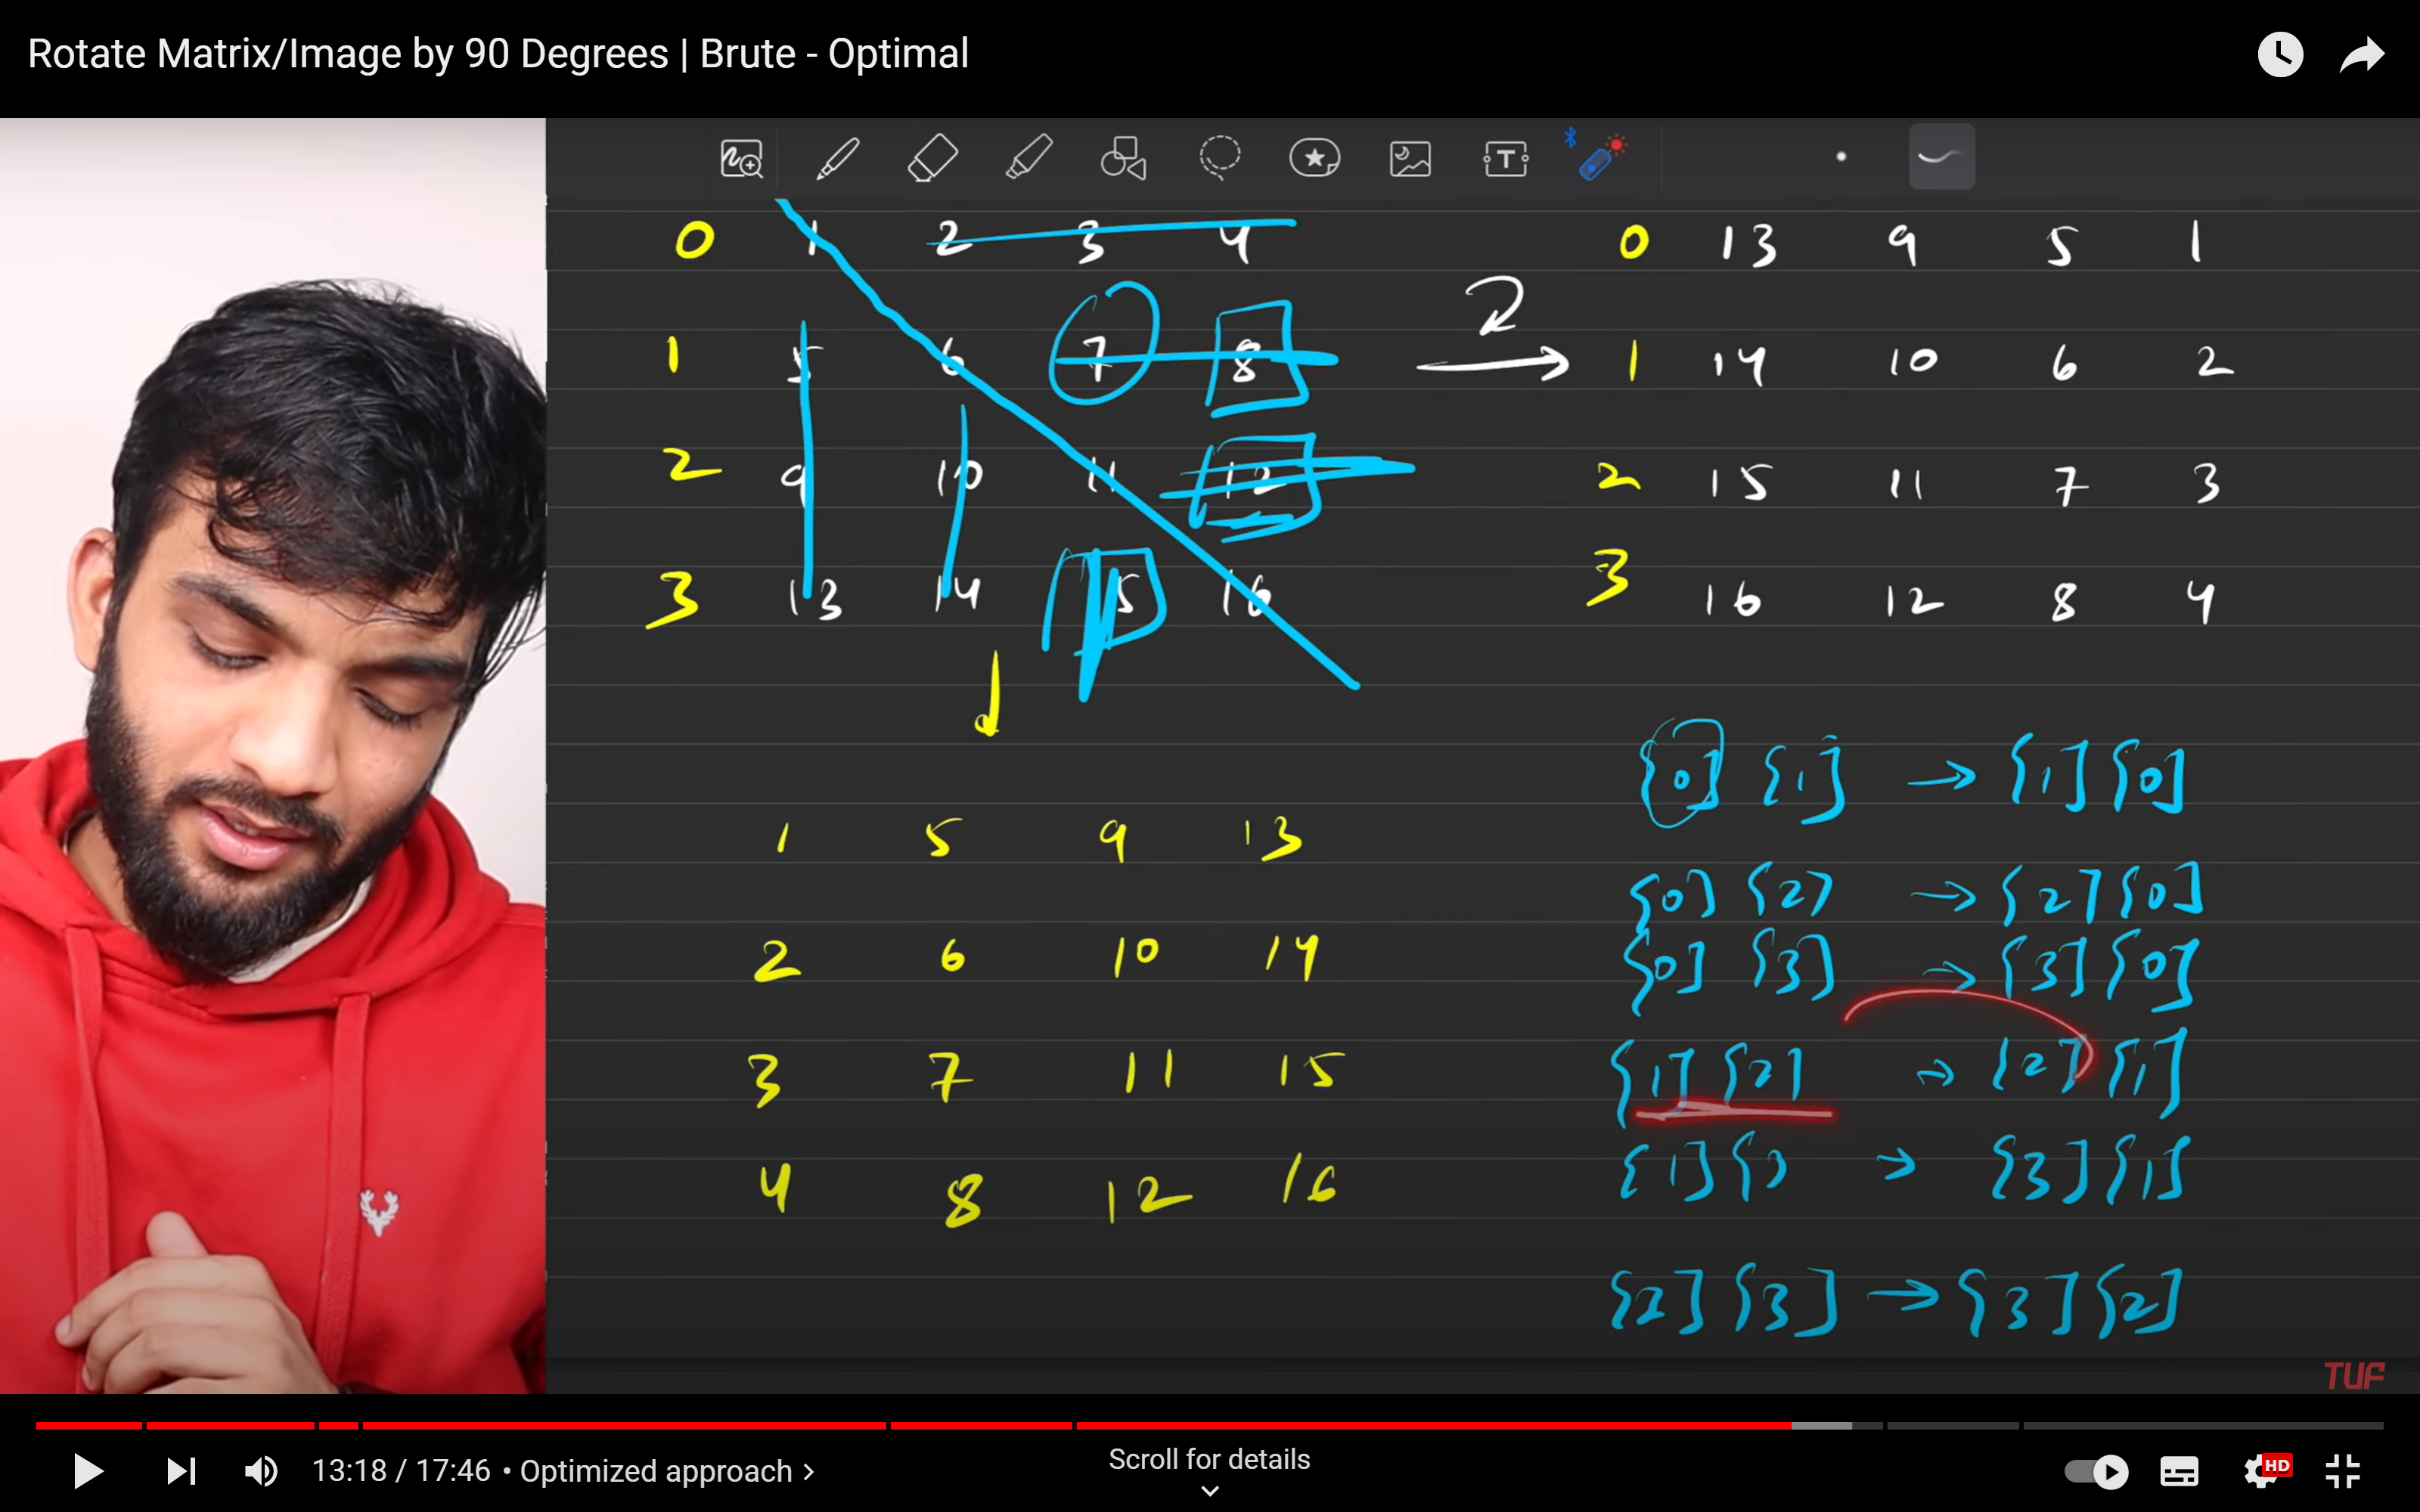 Rotate Matrix/Image by 90 Degrees | Brute - Optimal
T
0 1 2 3 4
1 5 6 7 8
2 9 10 11 12
3 13 14 15 16
0 13 9 5 1
1 14 10 6 2
2 15 11 7 3
3 16 12 8 4
1 5 9 13
2 6 10 14
3 7 11 15
4 8 12 16
[0] [1] → [1] [0]
[0] [2] → [2] [0]
[0] [3] → [3] [0]
[1] [2] → [2] [1]
[1] [3 → [3] [1]
[2] [3] → [3] [2]
TUF
13:18 / 17:46 • Optimized approach >
Scroll for details
HD